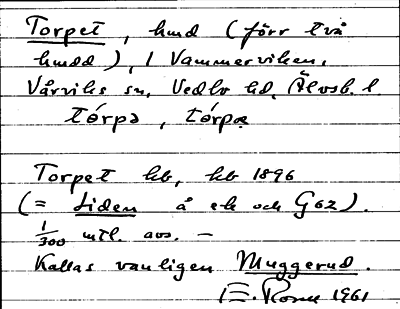 Torpet, hmd (förr två
hmdd), i Vammerviken,
Vårviks sn, Vedbo hd, Älvsb. l.
tórpə, tórpæ
Torpet hb, kb 1896
(= Liden å ek och G62).
1/300 mtl. avs. —
Kallas vanligen Muggerud.
1961